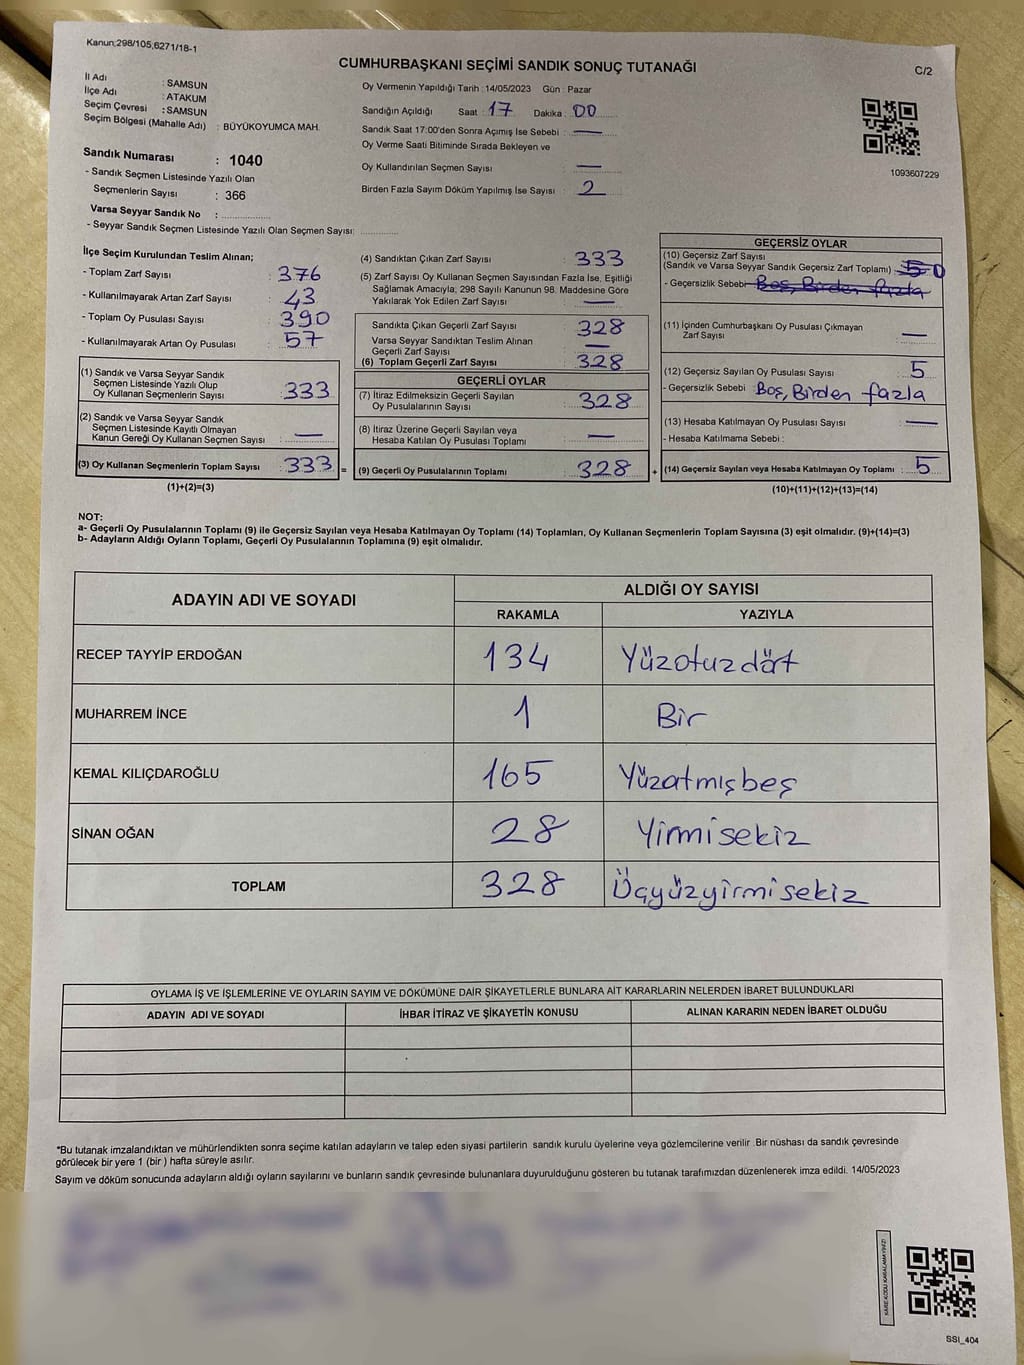 Kanun;298/105,6271/18-1
CUMHURBAŞKANI SEÇİMİ SANDIK SONUÇ TUTANAĞI
C/2
İl Adı : SAMSUN
İlçe Adı : ATAKUM
Seçim Çevresi : SAMSUN
Seçim Bölgesi (Mahalle Adı) : BÜYÜKOYUMCA MAH.
Sandık Numarası : 1040
- Sandık Seçmen Listesinde Yazılı Olan
Seçmenlerin Sayısı : 366
Varsa Seyyar Sandık No :
- Seyyar Sandık Seçmen Listesinde Yazılı Olan Seçmen Sayısı:
Oy Vermenin Yapıldığı Tarih : 14/05/2023 Gün : Pazar
Sandığın Açıldığı Saat : 17 Dakika : 00
Sandık Saat 17:00'den Sonra Açımış İse Sebebi : —
Oy Verme Saati Bitiminde Sırada Bekleyen ve
Oy Kullandırılan Seçmen Sayısı : —
Birden Fazla Sayım Döküm Yapılmış İse Sayısı : 2
1093607229
İlçe Seçim Kurulundan Teslim Alınan;
- Toplam Zarf Sayısı : 376
- Kullanılmayarak Artan Zarf Sayısı : 43
- Toplam Oy Pusulası Sayısı : 390
- Kullanılmayarak Artan Oy Pusulası : 57
(1) Sandık ve Varsa Seyyar Sandık
Seçmen Listesinde Yazılı Olup
Oy Kullanan Seçmenlerin Sayısı : 333
(2) Sandık ve Varsa Seyyar Sandık
Seçmen Listesinde Kayıtlı Olmayan
Kanun Gereği Oy Kullanan Seçmen Sayısı : —
(3) Oy Kullanan Seçmenlerin Toplam Sayısı : 333 =
(1)+(2)=(3)
(4) Sandıktan Çıkan Zarf Sayısı : 333
(5) Zarf Sayısı Oy Kullanan Seçmen Sayısından Fazla İse, Eşitliği
Sağlamak Amacıyla; 298 Sayılı Kanunun 98. Maddesine Göre
Yakılarak Yok Edilen Zarf Sayısı : —
Sandıkta Çıkan Geçerli Zarf Sayısı : 328
Varsa Seyyar Sandıktan Teslim Alınan
Geçerli Zarf Sayısı : —
(6) Toplam Geçerli Zarf Sayısı : 328
GEÇERLİ OYLAR
(7) İtiraz Edilmeksizin Geçerli Sayılan
Oy Pusulalarının Sayısı : 328
(8) İtiraz Üzerine Geçerli Sayılan veya
Hesaba Katılan Oy Pusulası Toplamı : —
(9) Geçerli Oy Pusulalarının Toplamı : 328 +
GEÇERSİZ OYLAR
(10) Geçersiz Zarf Sayısı
(Sandık ve Varsa Seyyar Sandık Geçersiz Zarf Toplamı) : 5 0
- Geçersizlik Sebebi : Boş, Birden fazla
(11) İçinden Cumhurbaşkanı Oy Pusulası Çıkmayan
Zarf Sayısı : —
(12) Geçersiz Sayılan Oy Pusulası Sayısı : 5
- Geçersizlik Sebebi : Boş, Birden fazla
(13) Hesaba Katılmayan Oy Pusulası Sayısı : —
- Hesaba Katılmama Sebebi :
(14) Geçersiz Sayılan veya Hesaba Katılmayan Oy Toplamı : 5
(10)+(11)+(12)+(13)=(14)
NOT:
a- Geçerli Oy Pusulalarının Toplamı (9) ile Geçersiz Sayılan veya Hesaba Katılmayan Oy Toplamı (14) Toplamları, Oy Kullanan Seçmenlerin Toplam Sayısına (3) eşit olmalıdır. (9)+(14)=(3)
b- Adayların Aldığı Oyların Toplamı, Geçerli Oy Pusulalarının Toplamına (9) eşit olmalıdır.
ADAYIN ADI VE SOYADI ALDIĞI OY SAYISI
RAKAMLA YAZIYLA
RECEP TAYYİP ERDOĞAN 134 Yüzotuzdört
MUHARREM İNCE 1 Bir
KEMAL KILIÇDAROĞLU 165 Yüzatmışbeş
SİNAN OĞAN 28 Yirmisekiz
TOPLAM 328 Üçyüzyirmisekiz
OYLAMA İŞ VE İŞLEMLERİNE VE OYLARIN SAYIM VE DÖKÜMÜNE DAİR ŞİKAYETLERLE BUNLARA AİT KARARLARIN NELERDEN İBARET BULUNDUKLARI
ADAYIN ADI VE SOYADI İHBAR İTİRAZ VE ŞİKAYETİN KONUSU ALINAN KARARIN NEDEN İBARET OLDUĞU
*Bu tutanak imzalandıktan ve mühürlendikten sonra seçime katılan adayların ve talep eden siyasi partilerin sandık kurulu üyelerine veya gözlemcilerine verilir .Bir nüshası da sandık çevresinde
görülecek bir yere 1 (bir ) hafta süreyle asılır.
Sayım ve döküm sonucunda adayların aldığı oyların sayılarını ve bunların sandık çevresinde bulunanlara duyurulduğunu gösteren bu tutanak tarafımızdan düzenlenerek imza edildi. 14/05/2023
KARE KODU KARALAMAYINIZ!
SSI_404